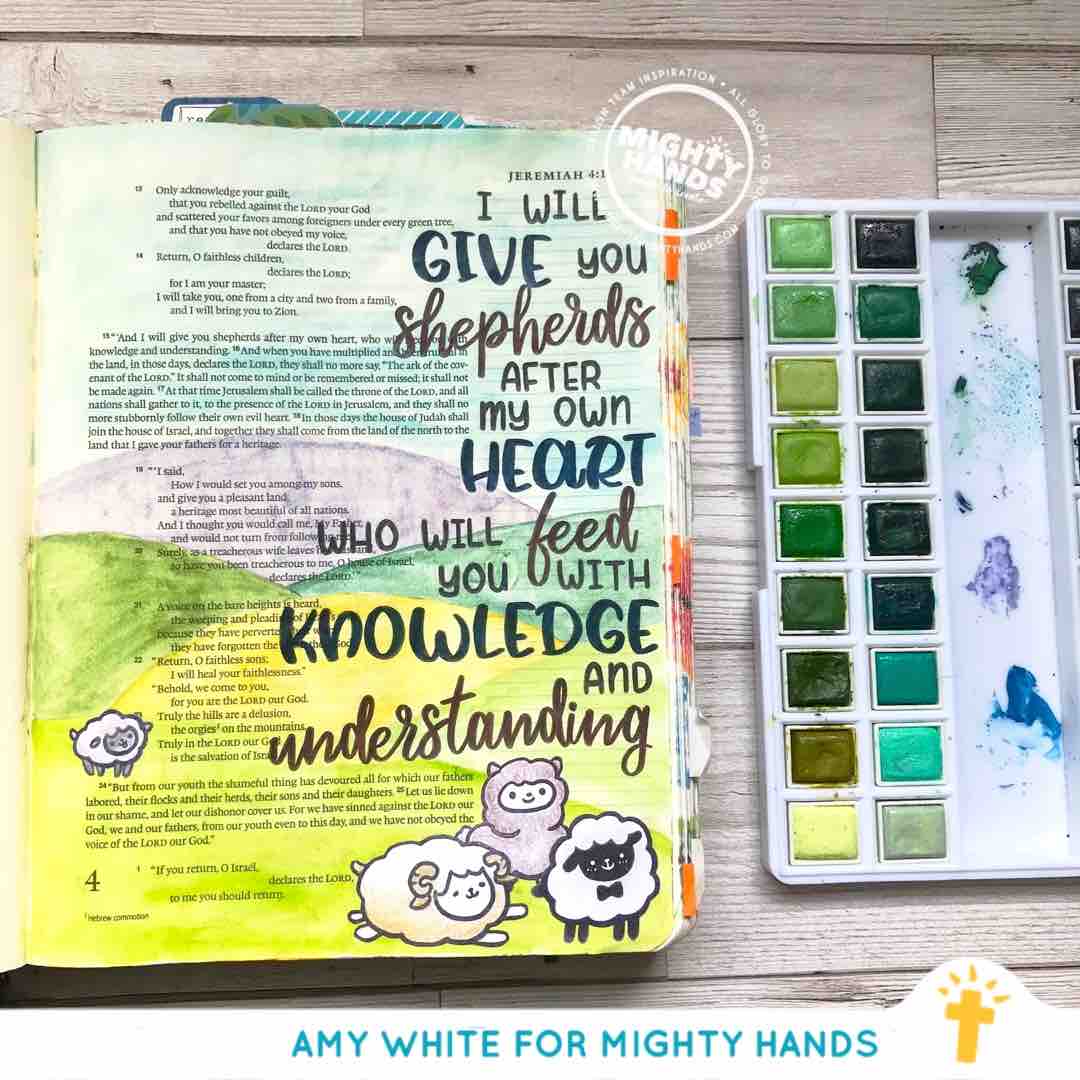 DESIGN TEAM INSPIRATION • ALL GLORY TO GOD
MIGHTY
HANDS
MIGHTYHANDS.COM
JEREMIAH 4:1
13 Only acknowledge your guilt,
that you rebelled against the LORD your God
and scattered your favors among foreigners under every green tree,
and that you have not obeyed my voice,
declares the LORD.
14 Return, O faithless children,
declares the LORD;
for I am your master;
I will take you, one from a city and two from a family,
and I will bring you to Zion.
15 "'And I will give you shepherds after my own heart, who will feed you with
knowledge and understanding. 16 And when you have multiplied and been fruitful in
the land, in those days, declares the LORD, they shall no more say, "The ark of the cov-
enant of the LORD." It shall not come to mind or be remembered or missed; it shall not
be made again. 17 At that time Jerusalem shall be called the throne of the LORD, and all
nations shall gather to it, to the presence of the LORD in Jerusalem, and they shall no
more stubbornly follow their own evil heart. 18 In those days the house of Judah shall
join the house of Israel, and together they shall come from the land of the north to the
land that I gave your fathers for a heritage.
19 "'I said,
How I would set you among my sons,
and give you a pleasant land,
a heritage most beautiful of all nations.
And I thought you would call me, My Father,
and would not turn from following me.
20 Surely, as a treacherous wife leaves her husband,
so have you been treacherous to me, O house of Israel,
declares the LORD.'"
21 A voice on the bare heights is heard,
the weeping and pleading of
because they have perverted their way;
they have forgotten the LORD their God.
22 "Return, O faithless sons;
I will heal your faithlessness."
"Behold, we come to you,
for you are the LORD our God.
23 Truly the hills are a delusion,
the orgies f on the mountains.
Truly in the LORD our God
is the salvation of Israel.
24 "But from our youth the shameful thing has devoured all for which our fathers
labored, their flocks and their herds, their sons and their daughters. 25 Let us lie down
in our shame, and let our dishonor cover us. For we have sinned against the LORD our
God, we and our fathers, from our youth even to this day, and we have not obeyed the
voice of the LORD our God."
4
1 "If you return, O Israel,
declares the LORD,
to me you should return.
f Hebrew commotion
I WILL
GIVE you
shepherds
AFTER
my OWN
HEART
WHO WILL feed
you WITH
KNOWLEDGE
AND
understanding
AMY WHITE FOR MIGHTY HANDS